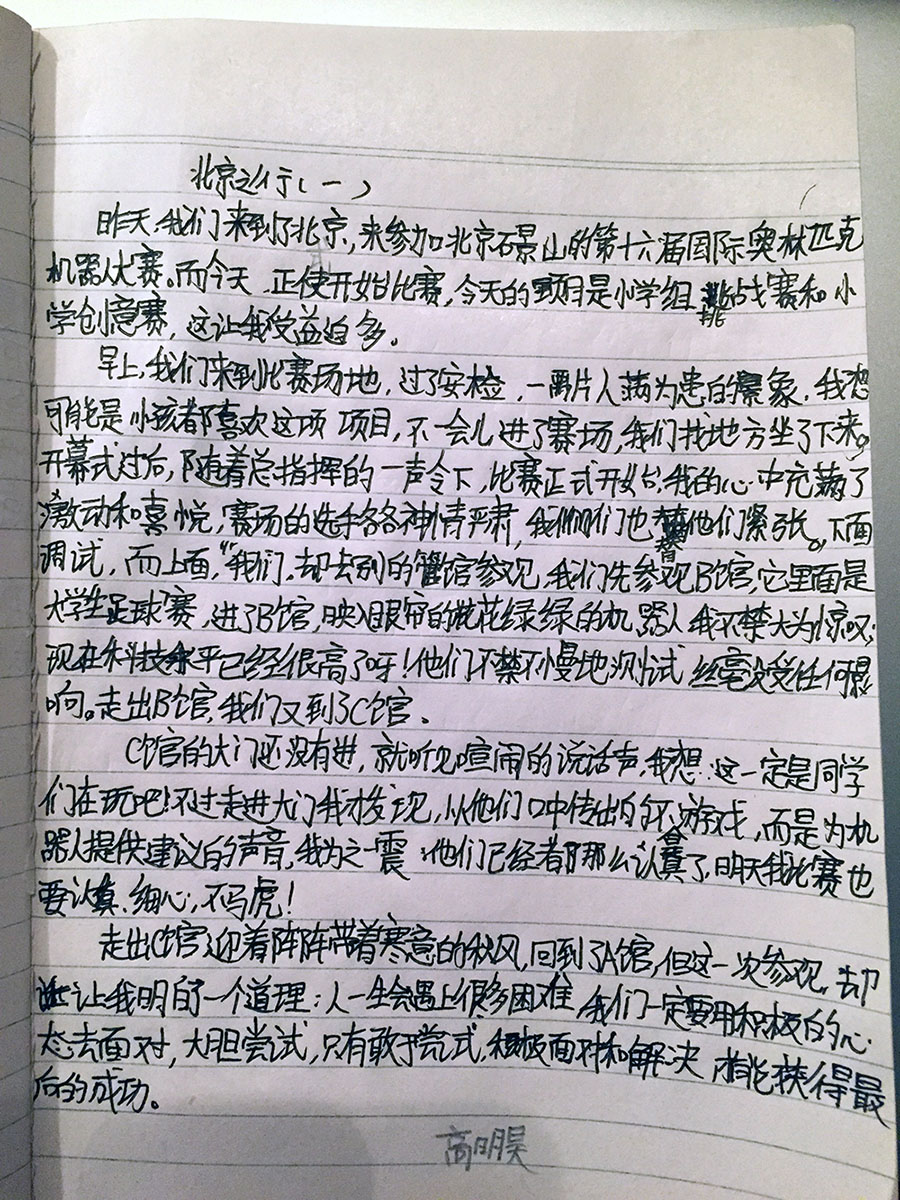 北京之行(一)
昨天,我们来到了北京,来参加北京石景山的第十六届国际奥林匹克
机器人比赛。而今天,正使开始比赛,今天的项目是小学组挑战赛和小
学创意赛,这让我受益迫多。
早上,我们来到比赛场地,过了安检,一幅片人满为患的景象,我想
可能是小孩都喜欢这项项目,不一会儿进了赛场,我们找地方坐了下来。
开幕式过后,随着总指挥的一声令下,比赛正式开始,我的心中充满了
激动和喜悦,赛场的选手各各神情严肃,我们也替他们紧张。下面
调试,而上面,“我们,却去别的馆参观,我们先参观B馆,它里面是
大学生足球赛,进了B馆,映入眼帘的是花绿绿的机器人我不禁大为惊叹:
现在科技水平已经很高了呀!他们不禁不慢地测试丝毫没受任何影
响。走出B馆,我们又到了C馆。
C馆的大门还没有进,就听见喧闹的说话声,我想:这一定是同学
们在玩吧!不过走进大门我才发现,从他们口中传出的不会游戏,而是为机
器人提供建议的声音,我为之一震:他们已经都那么认真了,明天我比赛也
要认真、细心,不马虎!
走出C馆迎着阵阵带着寒意的秋风,回到了A馆,但这一次参观,却
让我明白了一个道理:人一生会遇上很多困难,我们一定要用积极的心
态去面对,大胆尝试,只有敢于尝式,积极面对和解决,才能获得最
后的成功。
高明昊